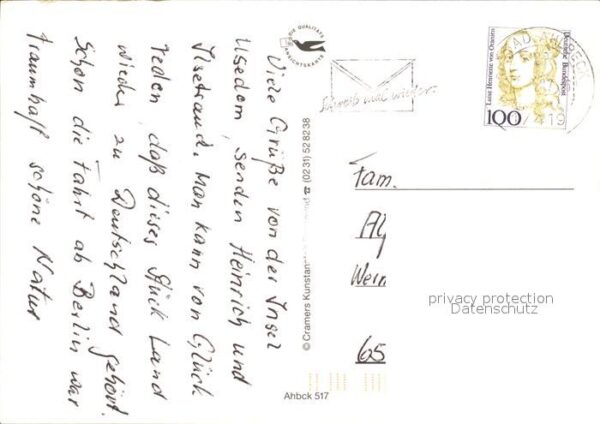 Viele Grüße von der Insel
Usedom, senden Heinrich und
Ilsetraud. Man kann von Glück
reden, daß dieses Stück Land
wieder zu Deutschland gehört.
Schon die Fahrt ab Berlin war
traumhaft schöne Natur
DIE QUALITÄTS
ANSICHTSKARTE
Schreib mal wieder.
© Cramers Kunstanstalt ☎ (0231) 528238
Ahbck 517
Luise Henriette von Oranien
Deutsche Bundespost
100
BAD AHLBECK
Fam.
Wern
65
privacy protection
Datenschutz